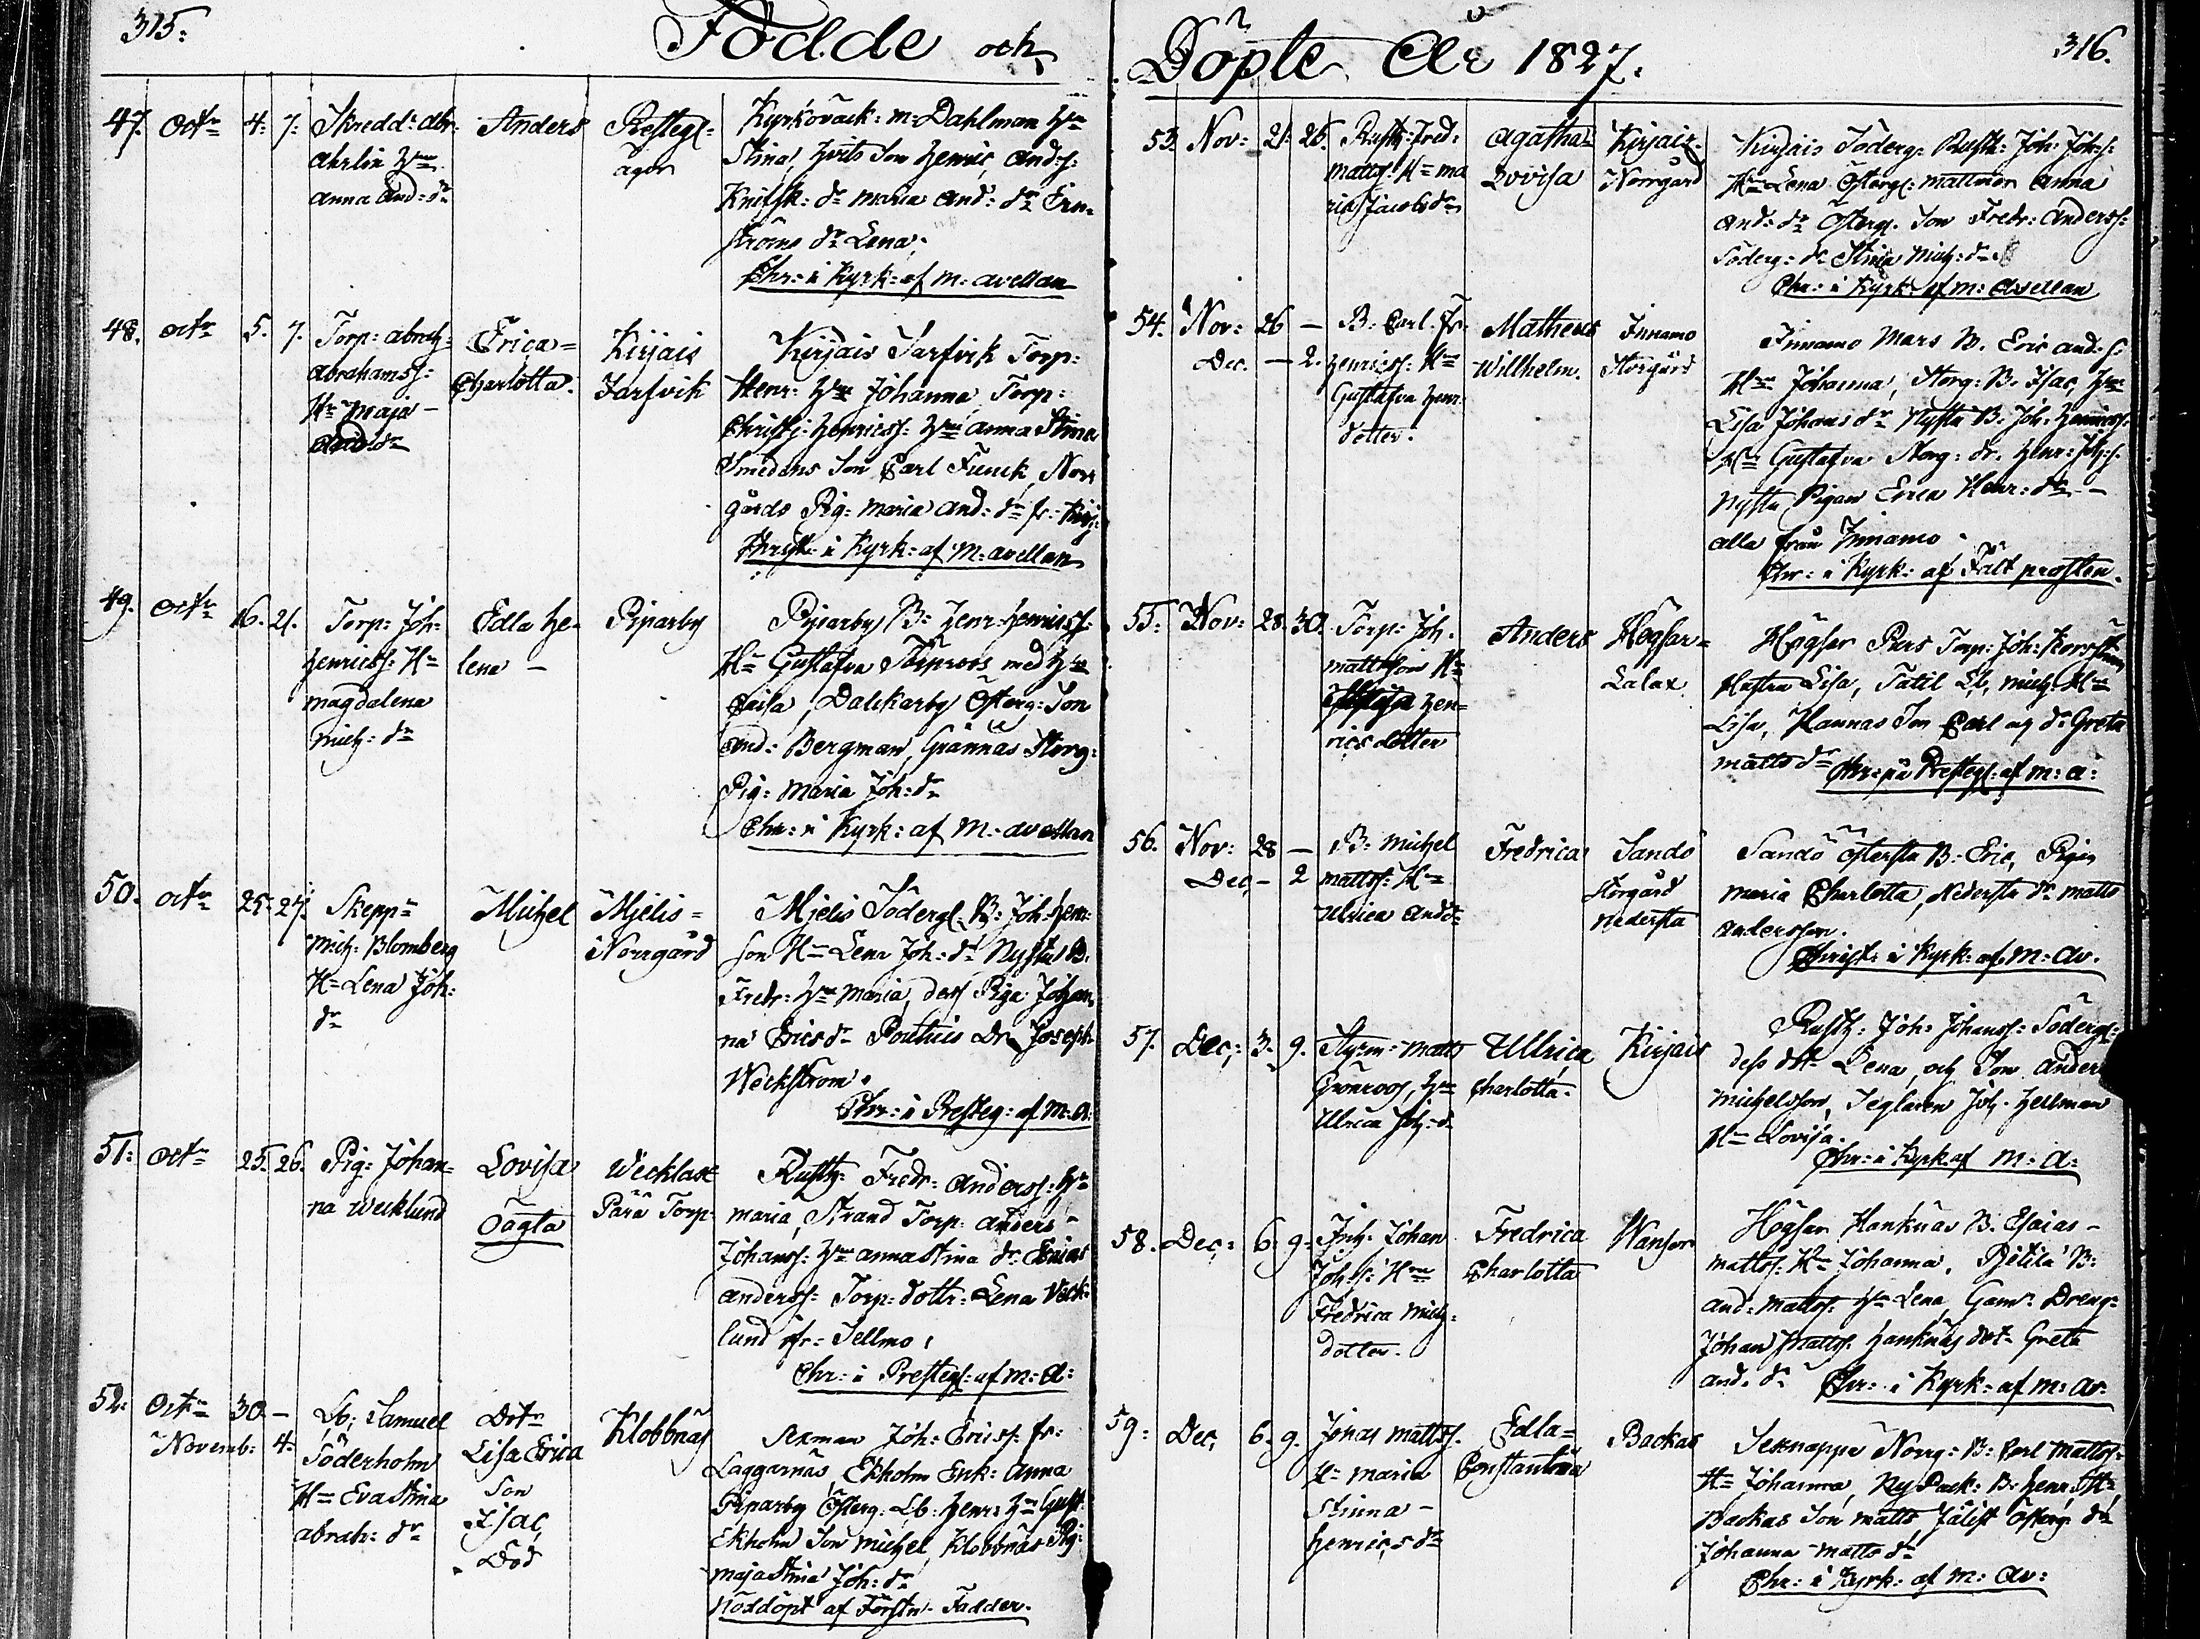 315.
Födde och
47. Octr 4. 7. Skredd: abr:
ahrlin Hu
anna And: dr
Anders
Prestegl=
ägor
Kyrkovack: m: Dahlman Hu
Stina, son Henric, And:s:
Knifsk: dr maria And: dr Ern=
ströms dr Lena.
Chr: i Kyrk: af M: avellan
48. octr 5. 7. Torp: abrah:
abrahamss:
Hu Maja
And: dr
Erica=
Charlotta.
Kirjais
Jarfvik
Kirjais Jarfvik Torp:
Henr: Hu Johanna, Torp:
Christ: Henricss: Hu anna Stina
Smedens Son Carl Funck, Norr
gårds Pig: maria And: dr fr:
Christ: i Kyrk: af M: avellan
49. octr 16. 21. Torp: Joh:
Henricss: Hu
magdalena
mich: dr
Edla He=
lena —
Piparby
Piparby B: Henr: Henricss:
Hu Gustafva med Hu
Caisa, Dalckarby Österg: Son
And: Bergman, Grännäs Storg:
Pig: Maria Joh: dr
Chr: i Kyrk: af M: avellan
50. octr 25. 27. Skepp:
Mich: Blomberg
Hu Lena Joh:
dr
Michel
Mjelis=
Norrgård
Mjelis Södergl: B: Joh: Hen:
son Hu Lena Joh: dr Nysta B.
Fredr: Hu Maria, dess Piga Johan
na Ericsdr Dr Joseph
Weckström.
Chr: i Presteg: af M: A:
51. Octr 25. 26. Pig: Johan=
na Wecklund
Lovisa
Oägta
Wecklax
Pärä Torp.
Rusth: Fredr: Anderss: Hu
maria, Strand Torp: Anders
Johanss: Hu anna Stina dr Esaias
anderss: Torp: dottr: Lena Weck=
lund fr: Sellmo.
Chr: i Presteg: af M: A:
52. Octr 30. —
Novemb: 4. Lb: Samuel
Söderholm
Hu Eva Stina
abrah: dr
Dotr
Lisa Erica
Son
Isac,
Död
Klobbnäs
Axman Joh: Ericss: fr:
Laggarnäs, Ekholm Enk: anna
Piparby Österg: Lb: Henr: Hu Gust:
Ekholm Son michel, Klobbnäs Pig:
maja Stina Joh: dr
Nöddöpt af Förstn: Fadder.
Döpte År 1827.
316.
53. Nov: 21. 25. Rusth: Fred:
mattss: Hu ma
ria Jacobsdr
Agatha=
Lovisa
Kirjais
Norrgård
Kirjais Söderg: Rusth: Joh: Joh:s:
Hu Lena Östergl: anna
And: dr Österg. Son Fredr: Anderss:
Söderg: dr Stina mich: dr
Chr: i Kyrk: af M: Avellan
54. Nov: 26 —
Dec. — 2. B: Carl Fr.
Henricss: Hu
Gustafva Henr:
dotter.
Matheus
Wilhelm.
Innamo
Storgård
Innamo Mars B. Eric and: s:
Hu Johanna, Storg: B: Isac, Hu
Lisa Johans dr Nysta B. Joh: Henricss:
Hu Gustafva Storg: dr. Henr: Joh:s:
Nysta Pigan Erica Henr: dr —
alla från Innamo.
Chr: i Kyrk: af Fält prosten.
55. Nov: 28. 30. Torp: Joh.
mattsson Hu
Hen=
rics dotter
Anders
Högsar=
Lalax
Högsar Pers Torp: Joh:
Hustru Lisa, Tätil Lb, mich: Hu
Lisa, Hannas Son Carl og dr Greta
matts dr Chr: på Prestegl: af M: A:
56. Nov: 28 —
Dec — 2 B: michel
mattss: Hu
Ulrica And: dr
Fredrica
Sandö
Storgård
nedersta
Sandö östersta B: Eric, Pigan
maria Charlotta, Nedersta dr matts
andersson.
Christ: i Kyrk: af M: Av.
57. Dec: 3. 9. Styrm: Matts
Grönroos, Hu
Ulrica Joh: dr
Ullrica
Charlotta.
Kirjais
Rusth: Joh: Johanss: Södergl:
dess dotr Lena, och Son Anders
Michelsson, Seglaren Joh. Hellman
Hu Lovisa.
Chr: i Kyrk af M: A:
58. Dec: 6. 9. Inh: Johan
Joh:s: Hu
Fredrica mich:
dotter.
Fredrica
Charlotta
Wansor
Högsar Hanknäs B. Esaias
mattss: Hu Johanna, B:
and: mattss: Hu Lena, Dreng:
Johan Matts: Hanknäs dotr Greta
and. dr Chr: i Kyrk: af M: Av:
59. Dec, 6. 9. Jonas mattss.
Hu maria
Stinna
Henrics dr
Edla=
Constantina
Backas
Norrg: B: Carl Mattss:
Hu Johanna, B: Henr: Hu
Backas Son Matts Österg: dr
Johanna matts dr
Chr: i Kyrk: af M: Av: